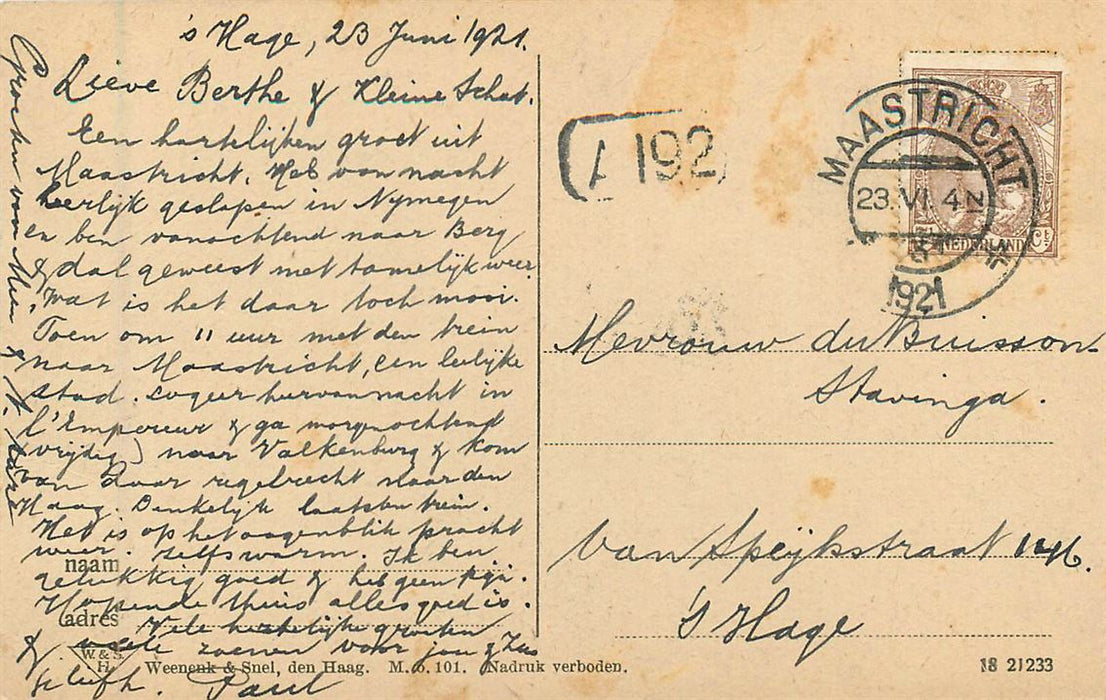 's Hage, 23 Juni 1921.
Lieve Berthe & Kleine Schat.
Een hartelijken groet uit
Maastricht. Heb van nacht
heerlijk geslapen in Nymegen
en ben vanochtend naar Berg
& dal geweest met tamelijk weer
Wat is het daar toch mooi.
Toen om 11 uur met den trein
naar Maastricht, een leelijke
stad. Logeer hier vannacht in
l'Empereur & ga morgenochtend
(vrijdag) naar Valkenburg & kom
van daar regelrecht naar den
Haag. Denkelijk laatsten trein.
Het is op het oogenblik pracht
weer. Zelfs warm. Ik ben
gelukkig goed & heb geen pijn.
Hopende thuis alles goed is.
Vele hartelijke groeten
& vele zoenen voor jou & Zus
je liefh. Paul
Groeten van Mien &
naam
adres
W. & S.
H.
Weenenk & Snel, den Haag. M. b. 101. Nadruk verboden.
18 21233
A 192
MAASTRICHT
23.VI. 4N
1921
NEDERLAND
Ct
Mevrouw du Buisson-
Stavinga.
van Speijkstraat 146.
's Hage